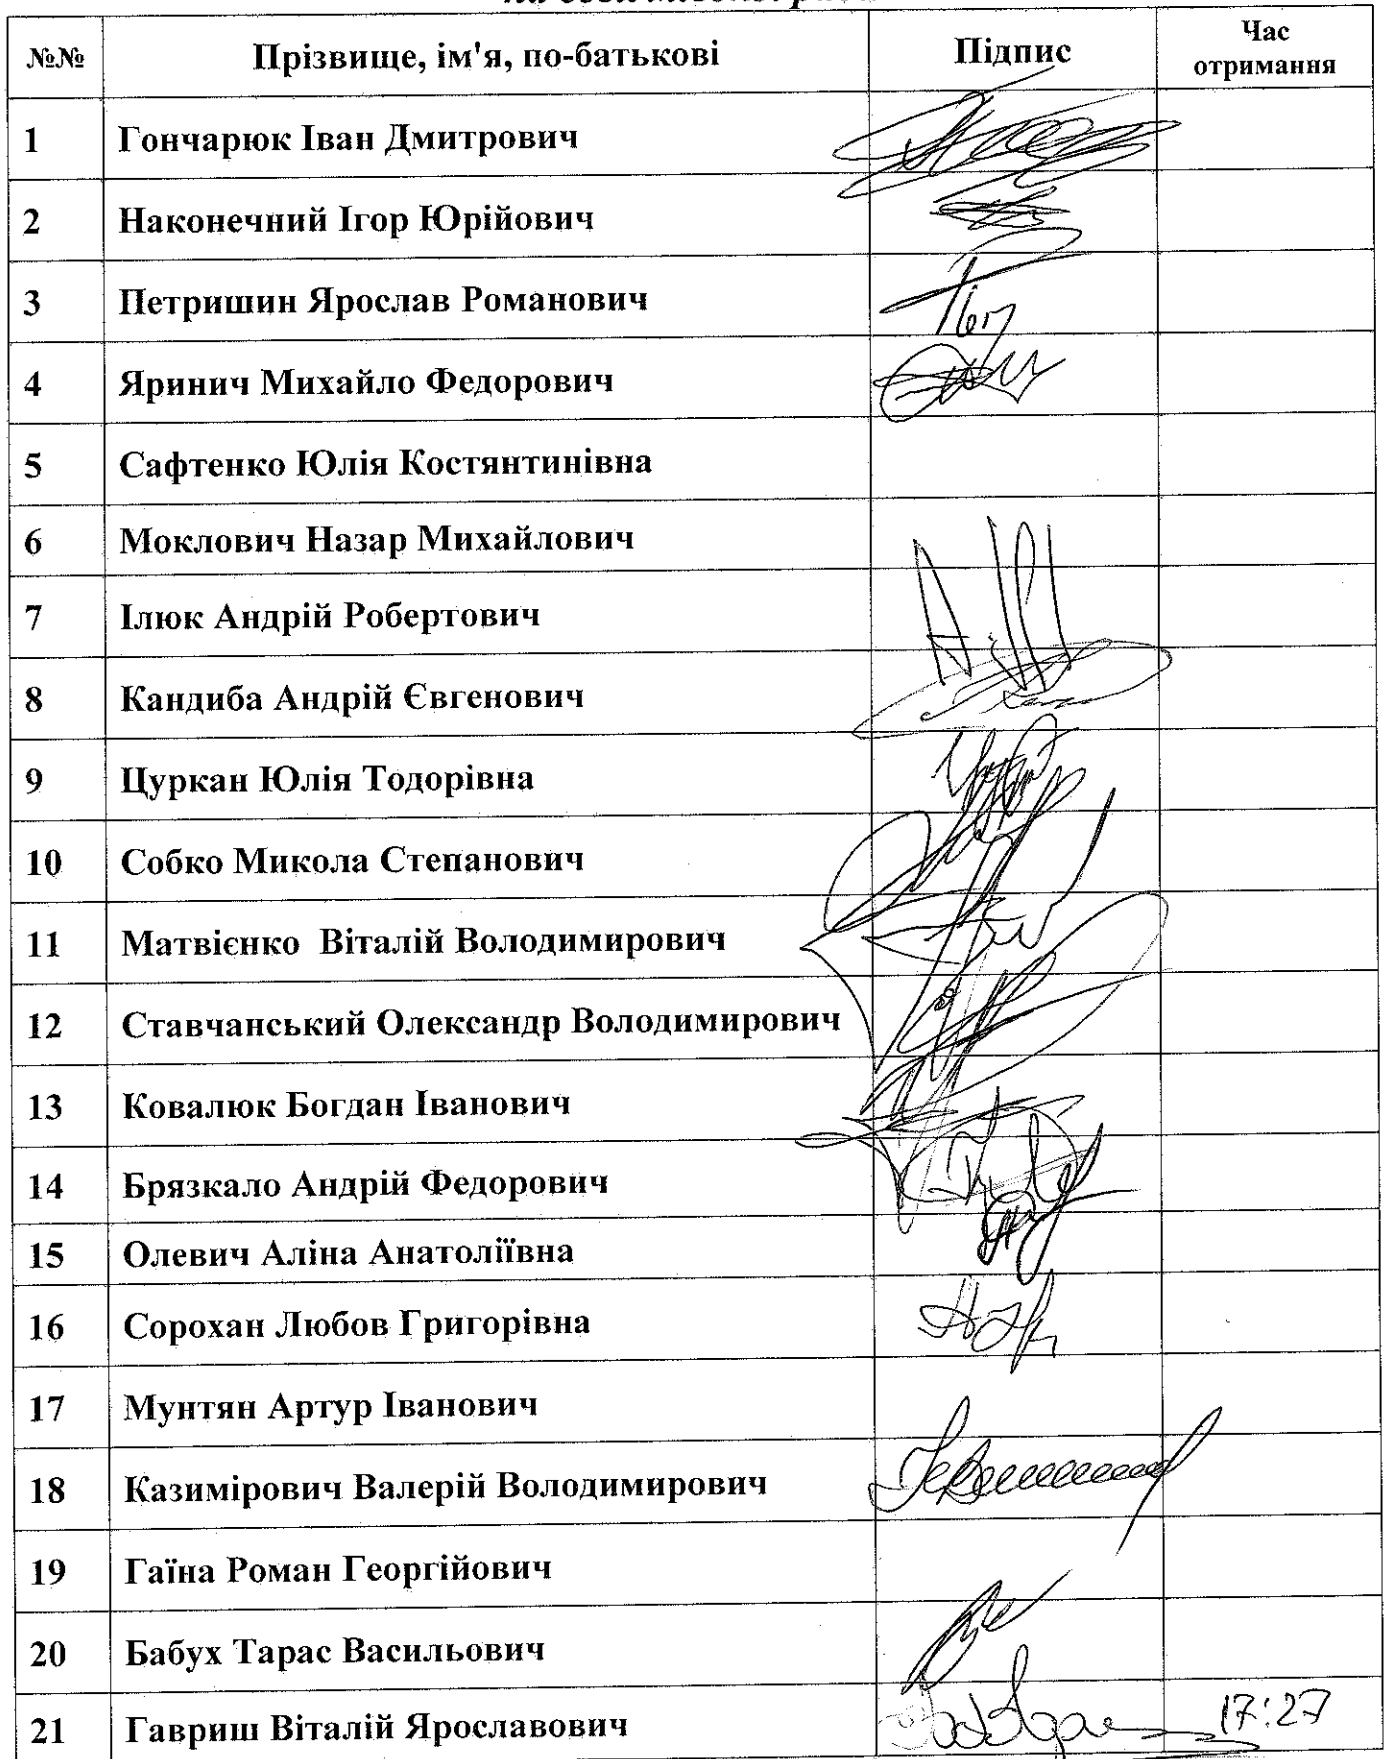 №№ Прізвище, ім'я, по-батькові Підпис Час отримання
1 Гончарюк Іван Дмитрович
2 Наконечний Ігор Юрійович
3 Петришин Ярослав Романович
4 Яринич Михайло Федорович
5 Сафтенко Юлія Костянтинівна
6 Моклович Назар Михайлович
7 Ілюк Андрій Робертович
8 Кандиба Андрій Євгенович
9 Цуркан Юлія Тодорівна
10 Собко Микола Степанович
11 Матвієнко Віталій Володимирович
12 Ставчанський Олександр Володимирович
13 Ковалюк Богдан Іванович
14 Брязкало Андрій Федорович
15 Олевич Аліна Анатоліївна
16 Сорохан Любов Григорівна
17 Мунтян Артур Іванович
18 Казимірович Валерій Володимирович
19 Гаїна Роман Георгійович
20 Бабух Тарас Васильович
21 Гавриш Віталій Ярославович 17:27